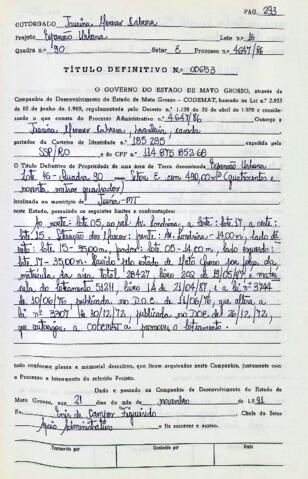 PAG. 293
OUTORGADO Jurina Munner Cabrera
Projeto Expansão Urbana Lote nº 16
Quadra n.º 90 Setor E Processo n.º 4647/86
TÍTULO DEFINITIVO N.º 00653
O GOVERNO DO ESTADO DE MATO GROSSO, através
da Companhia de Desenvolvimento do Estado de Mato Grosso - CODEMAT, com base na Lei n.º 2.933
de 10 de junho de 1969, regulamentado pelo Decreto n.º 1.138 de 30 de abril de 1970 e considerando
o que consta do Processo Administrativo n.º 4.647/86 Outorga a
brasileira, casada
portador da Carteira de Identidade n.º 185 295 expedida pelo
SSP/RO e do CPF n.º 114 875 852 68
O Título Definitivo de Propriedade de uma área de Terra denominada Expansão Urbana
Lote 16 - Quadra 90 - Setor E com 490,00 m² (quatrocentos e
noventa metros quadrados)
localizada no município de Juína - MT
neste Estado, possuindo os seguintes limites e confrontações:
Ao norte: lote 05, ao sul: Av. Londrina, a leste: lote 17, a oeste:
lote 15. Situação dos Marcos: frente: Av. Londrina - 14,00 m, lado di-
reito: lote 15 - 35,00 m, fundos: lote 05 - 14,00 m, lado esquerdo:
lote 17 - 35,00 m. Havido pelo estado de Mato Grosso por força da
matrícula da área total 28427 livro 202 de 19/05/87 e matrí-
cula do loteamento 51211 livro 1A de 21/04/87 e a lei nº 3744
de 10/06/76, publicada no D.O.E. de 14/06/76, que altera a
lei nº 3307 de 10/12/72, publicada no DOE de 26/12/72,
que autorizou a CODEMAT a promover o loteamento.
tudo conforme planta e memorial descritivo, que ficam arquivados nesta Companhia, juntamente com
o Processo e loteamento do referido Projeto.
Dado e passado na Companhia de Desenvolvimento do Estado de
Mato Grosso, aos 21 dias do mês de novembro de 1991
Eu, Enir de Campos Figueiredo Chefe do Setor
Apoio Administrativo o fiz escrever e assino.
Transcrito por
Conferido por
Visto